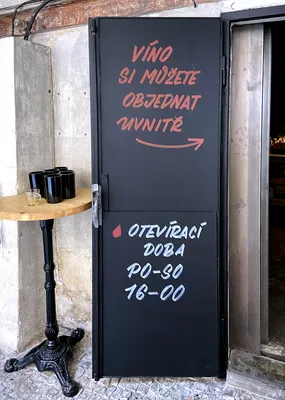 VÍNO
SI MŮŽETE
OBJEDNAT
UVNITŘ
OTEVÍRACÍ
DOBA
PO-SO
16-00